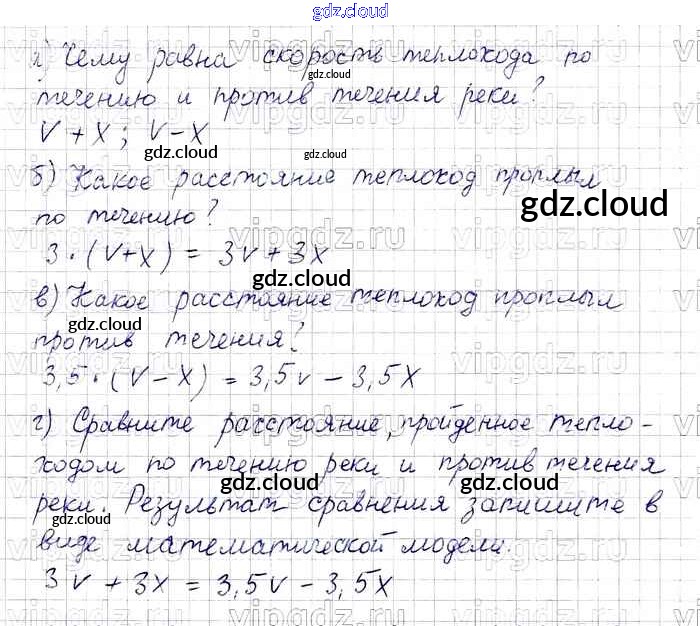 gdz.cloud
а) Чему равна скорость теплохода по
gdz.cloud
течению и против течения реки?
V + X ; V - X
gdz.cloud gdz.cloud
б) Какое расстояние теплоход проплыл
по течению?
gdz.cloud
3 · (V+X) = 3V + 3X
gdz.cloud
в) Какое расстояние теплоход проплыл
gdz.cloud
против течения?
3,5 · (V - X) = 3,5V - 3,5X
г) Сравните расстояние, пройденное тепло-
ходом по течению реки и против течения
gdz.cloud gdz.cloud
реки. Результат сравнения запишите в
gdz.cloud
виде математической модели.
gdz.cloud
3V + 3X = 3,5V - 3,5X